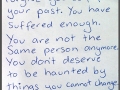 your past. You have
suffered enough.
You are not the
Same person anymore.
You don't deserve
to be haunted by
things you cannot change